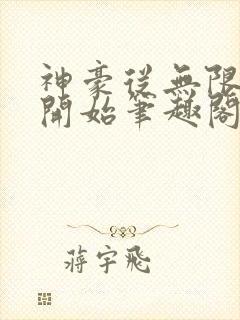 神豪從無限
開始筆趣閣
蔣宇飛